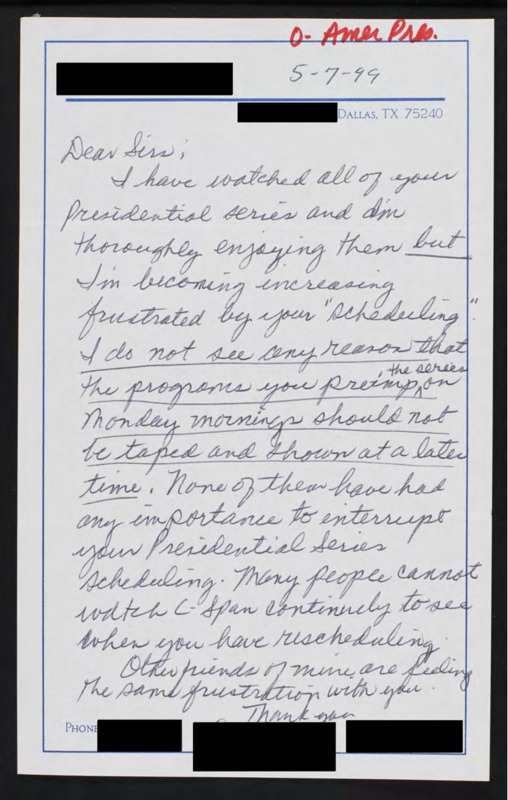 O- Amer Pres.
5-7-99
Dallas, TX 75240
Dear Sirs;
I have watched all of your
Presidential series and I'm
thoroughly enjoying them but
I'm becoming increasing
frustrated by your "scheduling".
I do not see any reason that
the programs you preimp the series on
Monday mornings should not
be taped and shown at a later
time. None of them have had
any importance to interrupt
your Presidential Series
scheduling. Many people cannot
watch C-Span continuely to see
when you have rescheduling.
Other friends of mine are feeling
the same frustration with you.
Thank you
Phone